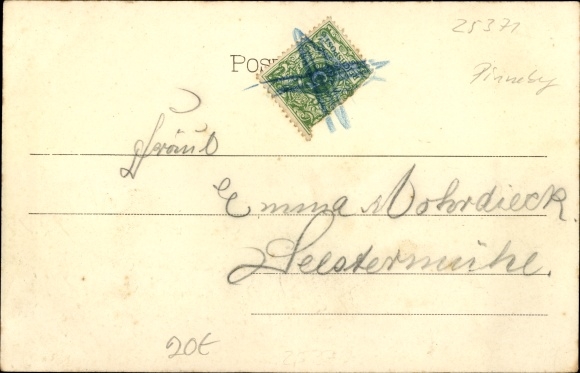 25371
Pinnebg
Fräul
Emma Mohrdieck.
Seestermühe.
20€